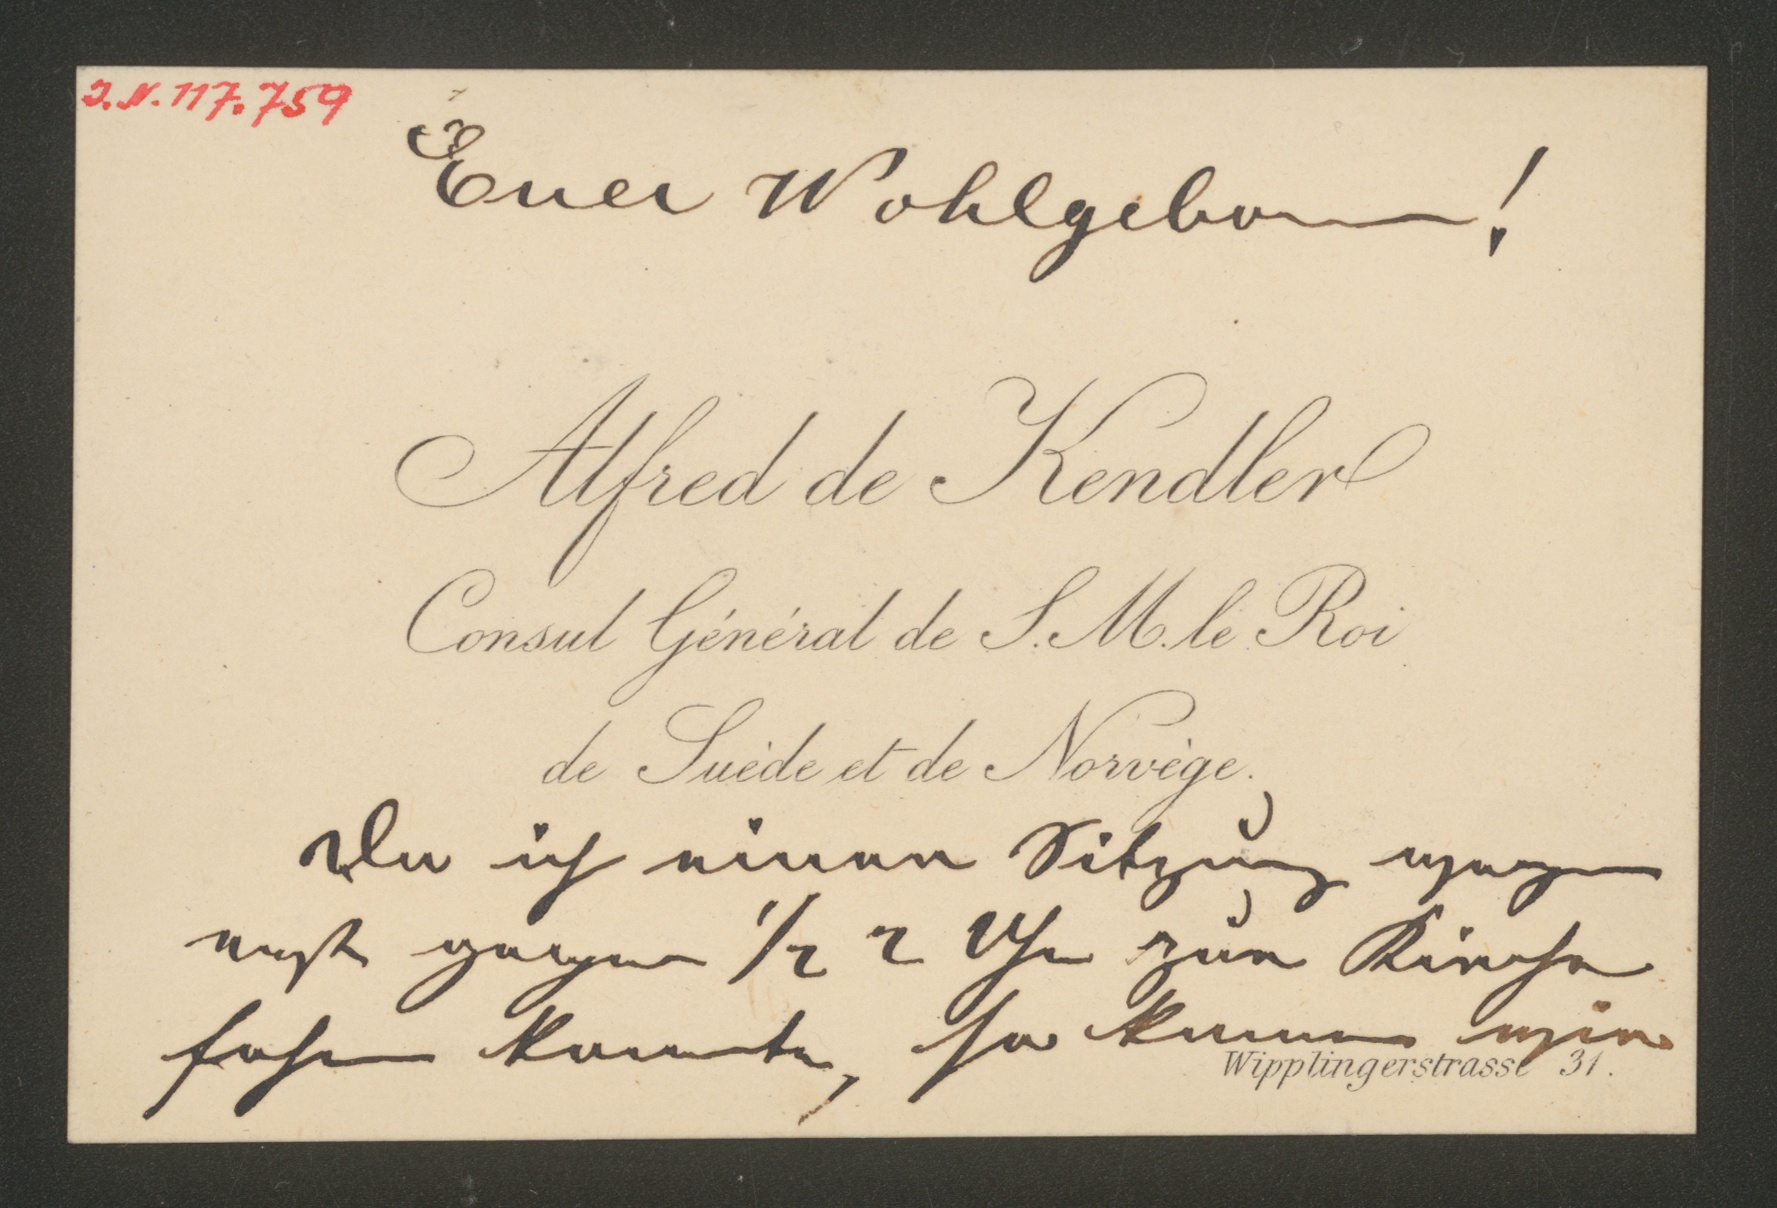 I.N. 117.759
Euer Wohlgeboren!
Alfred de Kendler
Consul Général de S. M. le Roi
de Suède et de Norvège.
Da ich einer Sitzung wegen
erst gegen 1/2 2 Uhr zur Kirche
fahren konnte, so kann
Wipplingerstrasse 31.